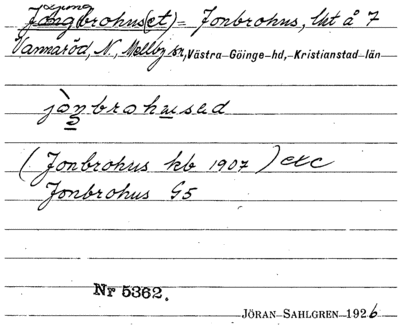 Jongbrohus(et) = Jonbrohus, lht å 7
Vannaröd, N. Mellby sn, Västra Göinge hd, Kristianstad län
jònbrohused
(Jonbrohus kb 1907) etc
Jonbrohus G5
Nr 5362.
JÖRAN SAHLGREN 1926